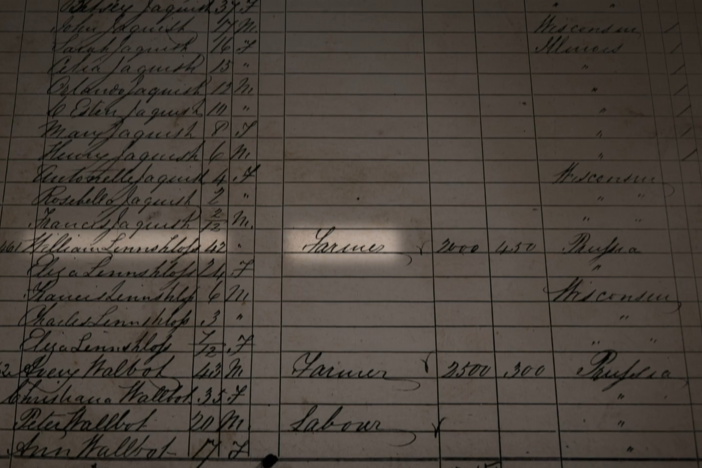 Betsey Jaquish 37 F " "
John Jaquish 17 M Wisconsin /
Sarah Jaquish 16 F Illinois /
Celia Jaquish 13 " " /
Orlando Jaquish 12 M " /
C Esten Jaquish 10 " " /
Mary Jaquish 8 F " /
Henry Jaquish 6 M " /
Antonette Jaquish 4 F Wisconsin
Rosebella Jaquish 2 " " "
Francis Jaquish 2/12 M " "
William Linnshlop 42 " Farmer 2000 450 Prussia
Eliza Linnshlop 24 F "
Francis Linnshlop 6 M Wisconsin
Charles Linnshlop 3 " "
Eliza Linnshlop 7/12 F " "
Walbot 43 M Farmer 2500 300 Prussia
Christiana Wallbot 35 F "
Peter Wallbot 20 M Labour "
Ann Wallbot 17 F "